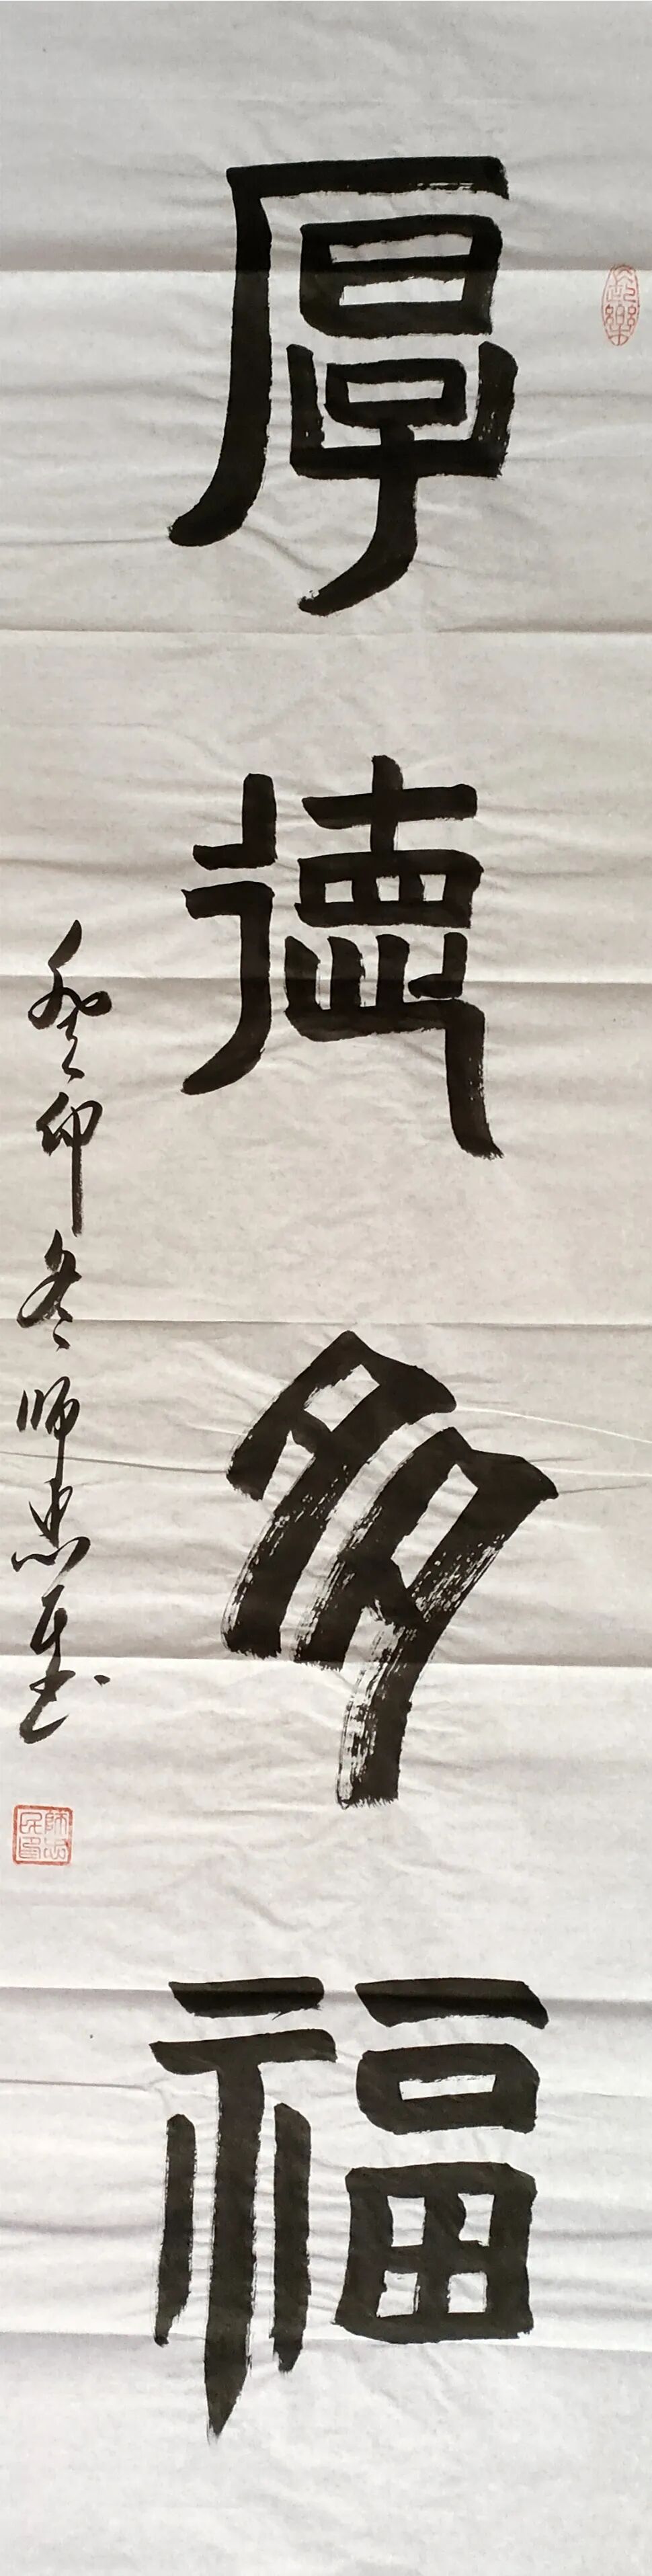 厚德多福
癸卯冬师忠民书
师忠民印